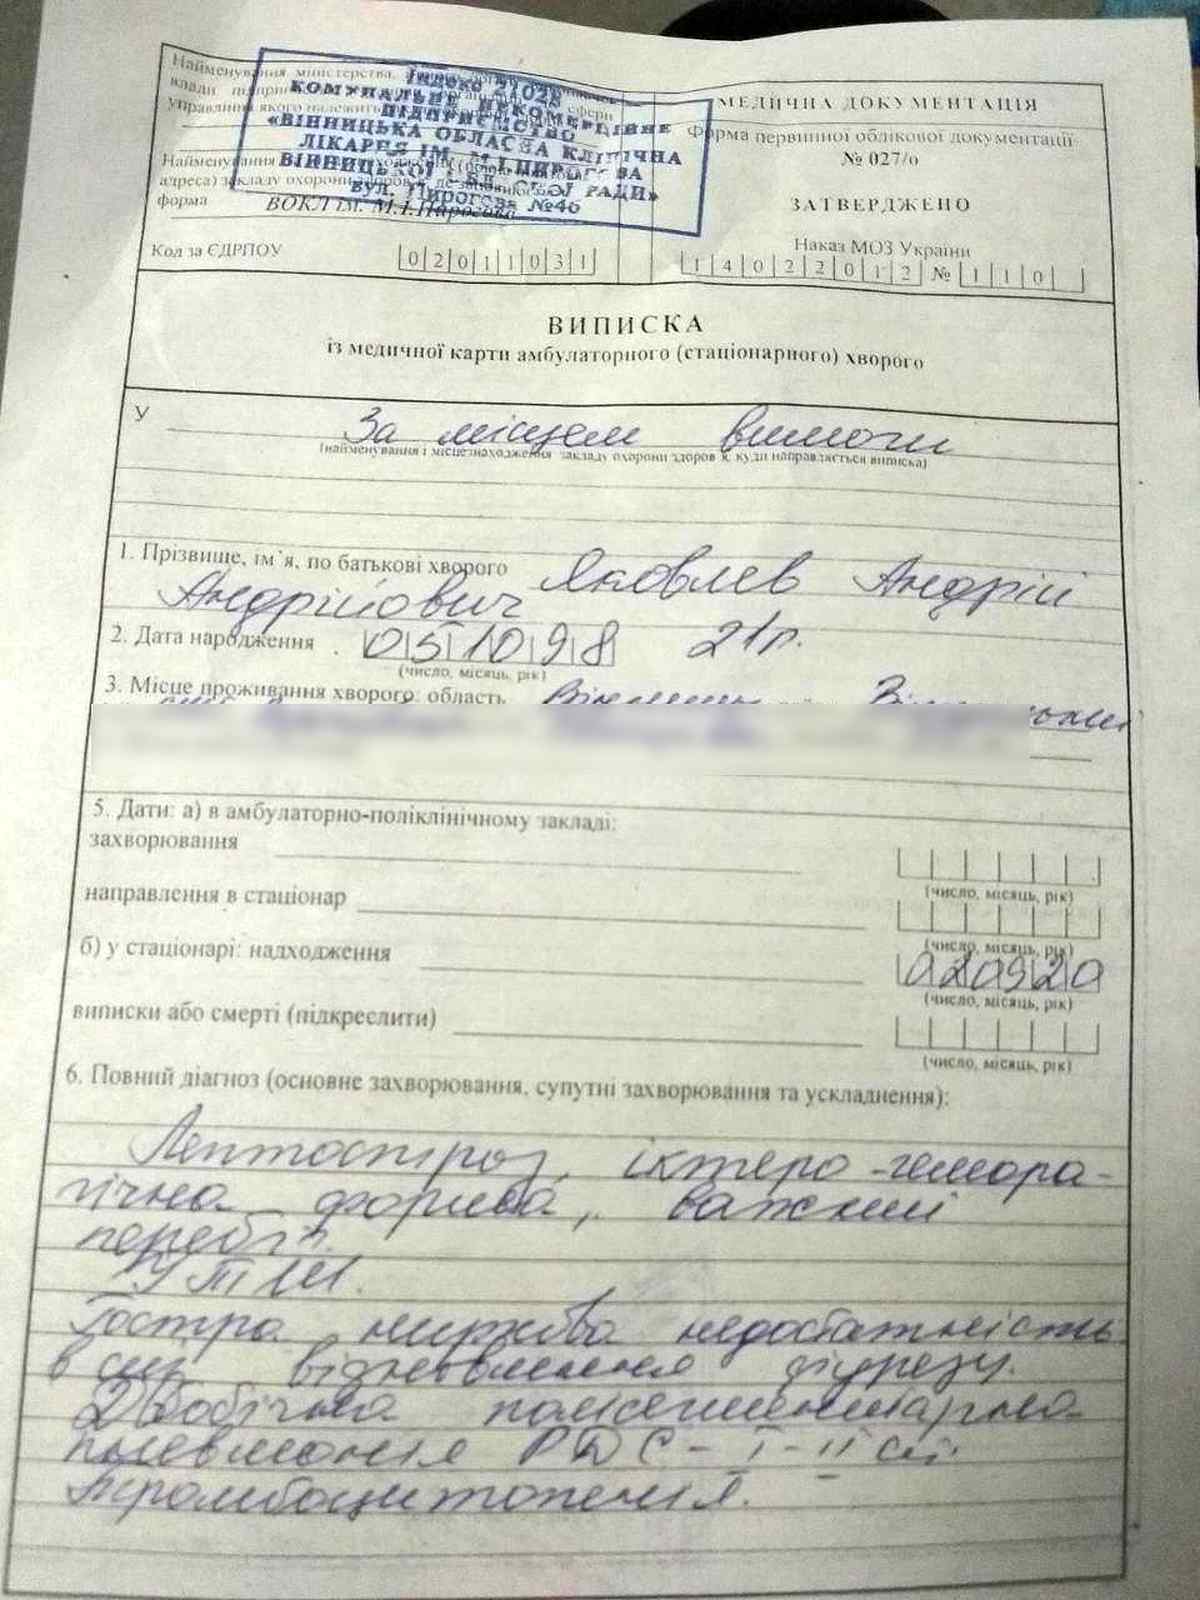 Найменування міністерства,
Індекс 21028
КОМУНАЛЬНЕ НЕКОМЕРЦІЙНЕ
ПІДПРИЄМСТВО
«ВІННИЦЬКА ОБЛАСНА КЛІНІЧНА
ЛІКАРНЯ ІМ. М.І.ПИРОГОВА
ВІННИЦЬКОЇ ОБЛАСНОЇ РАДИ»
вул. Пирогова №46
управління якого належить
Найменування
адреса) закладу охорони здоров'я, де заповнюється
форма ВОКЛ ім. М.І.Пирогова
Код за ЄДРПОУ 02011031
МЕДИЧНА ДОКУМЕНТАЦІЯ
Форма первинної облікової документації
№ 027/о
ЗАТВЕРДЖЕНО
Наказ МОЗ України
14022012 № 110
ВИПИСКА
із медичної карти амбулаторного (стаціонарного) хворого
У За місцем вимоги
(найменування і місцезнаходження закладу охорони здоров'я, куди направляється виписка)
1. Прізвище, ім'я, по батькові хворого Яковлєв Андрій
Андрійович
2. Дата народження 051098 21р.
(число, місяць, рік)
3. Місце проживання хворого: область
5. Дати: а) в амбулаторно-поліклінічному закладі:
захворювання
(число, місяць, рік)
направлення в стаціонар
(число, місяць, рік)
б) у стаціонарі: надходження 020920
(число, місяць, рік)
виписки або смерті (підкреслити)
(число, місяць, рік)
6. Повний діагноз (основне захворювання, супутні захворювання та ускладнення):
Лептоспіроз, іктеро-гемора-
гічна форма, важкий
перебіг.
ІТШ.
Гостра ниркова недостатність
в ст. відновлення діурезу.
Двобічна полісегментарна
пневмонія РДС-I-II ст.
Тромбоцитопенія.